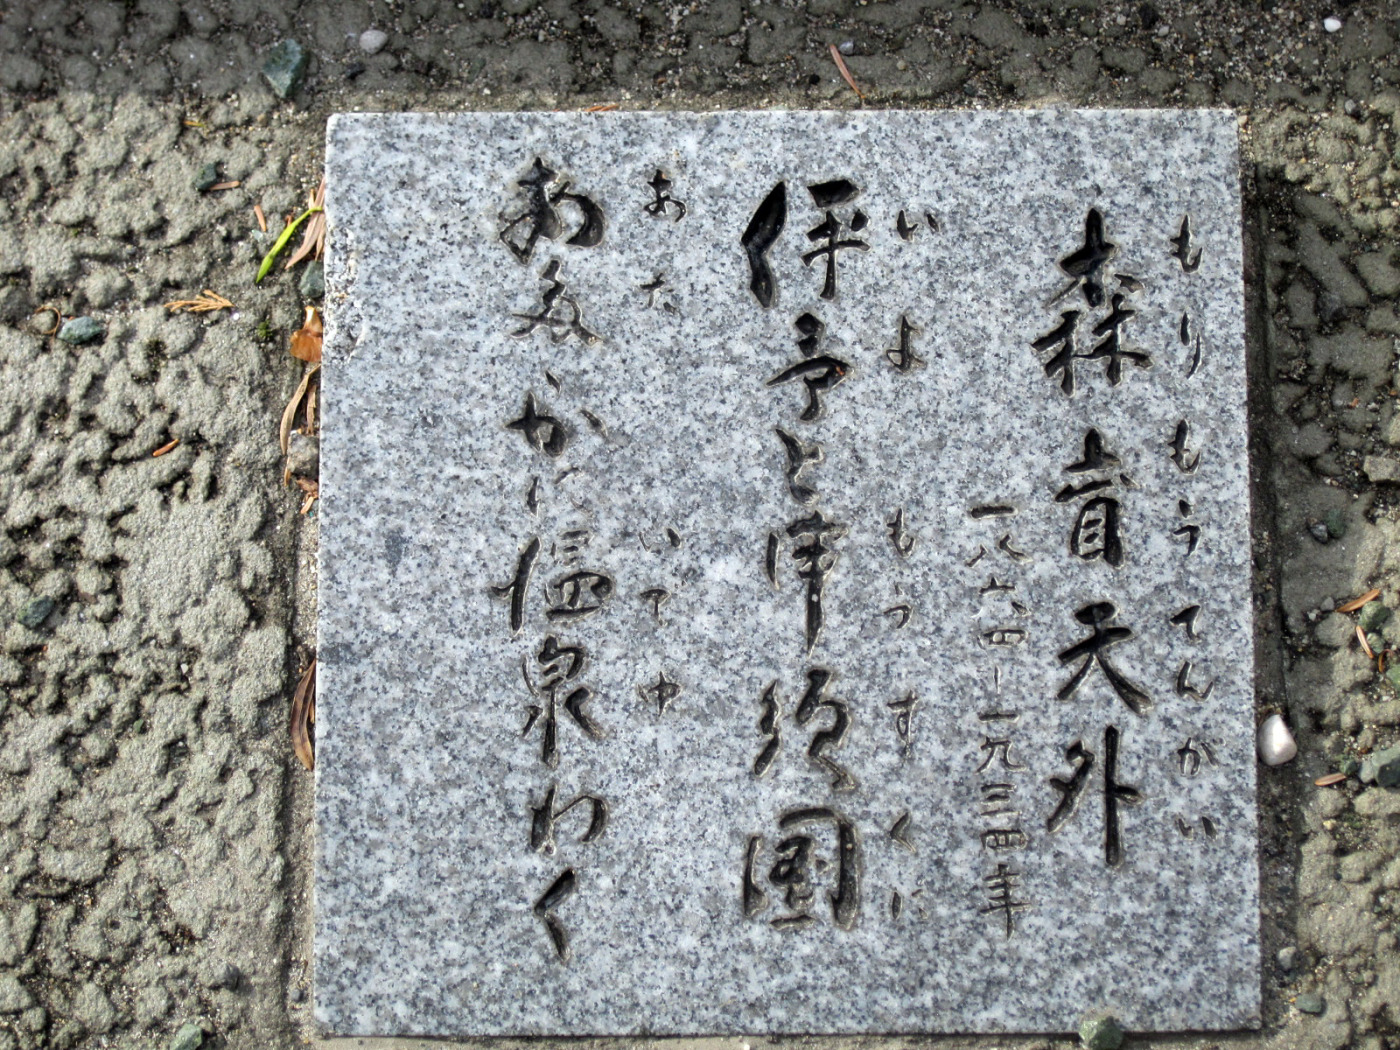 もりもうてんがい
森盲天外
一八六四-一九三四年
いよ もうすくに
伊予と申須国
あた いでゆ
多かに温泉わく